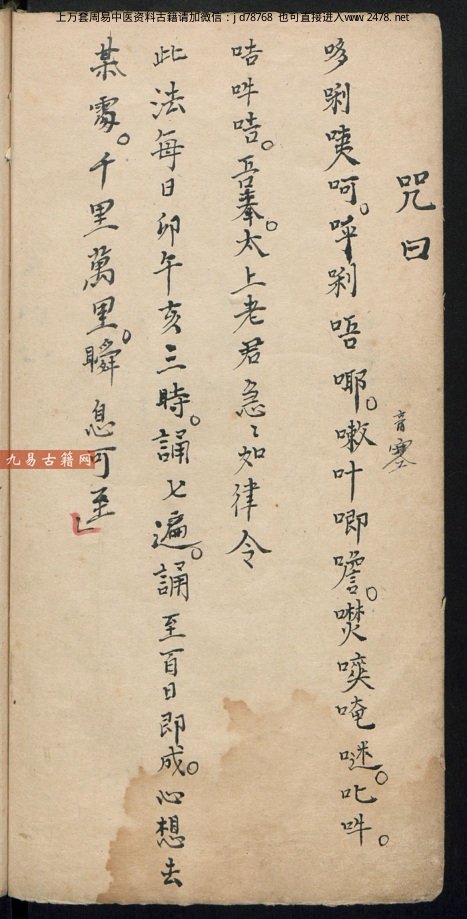 上万套周易中医资料古籍请加微信：jd78768 也可直接进入www.2478.net
咒曰
音塞
哆唎㖿呵。呼唎唔㖿。嗽叶唧噡。㗼㗿唵㖷。叱吽。
咭吽咭。吾奉。太上老君急〻如律令
此法每日卯午亥三時。誦七遍。誦至百日即成。心想去
某處。千里萬里。瞬息可至
九易古籍网